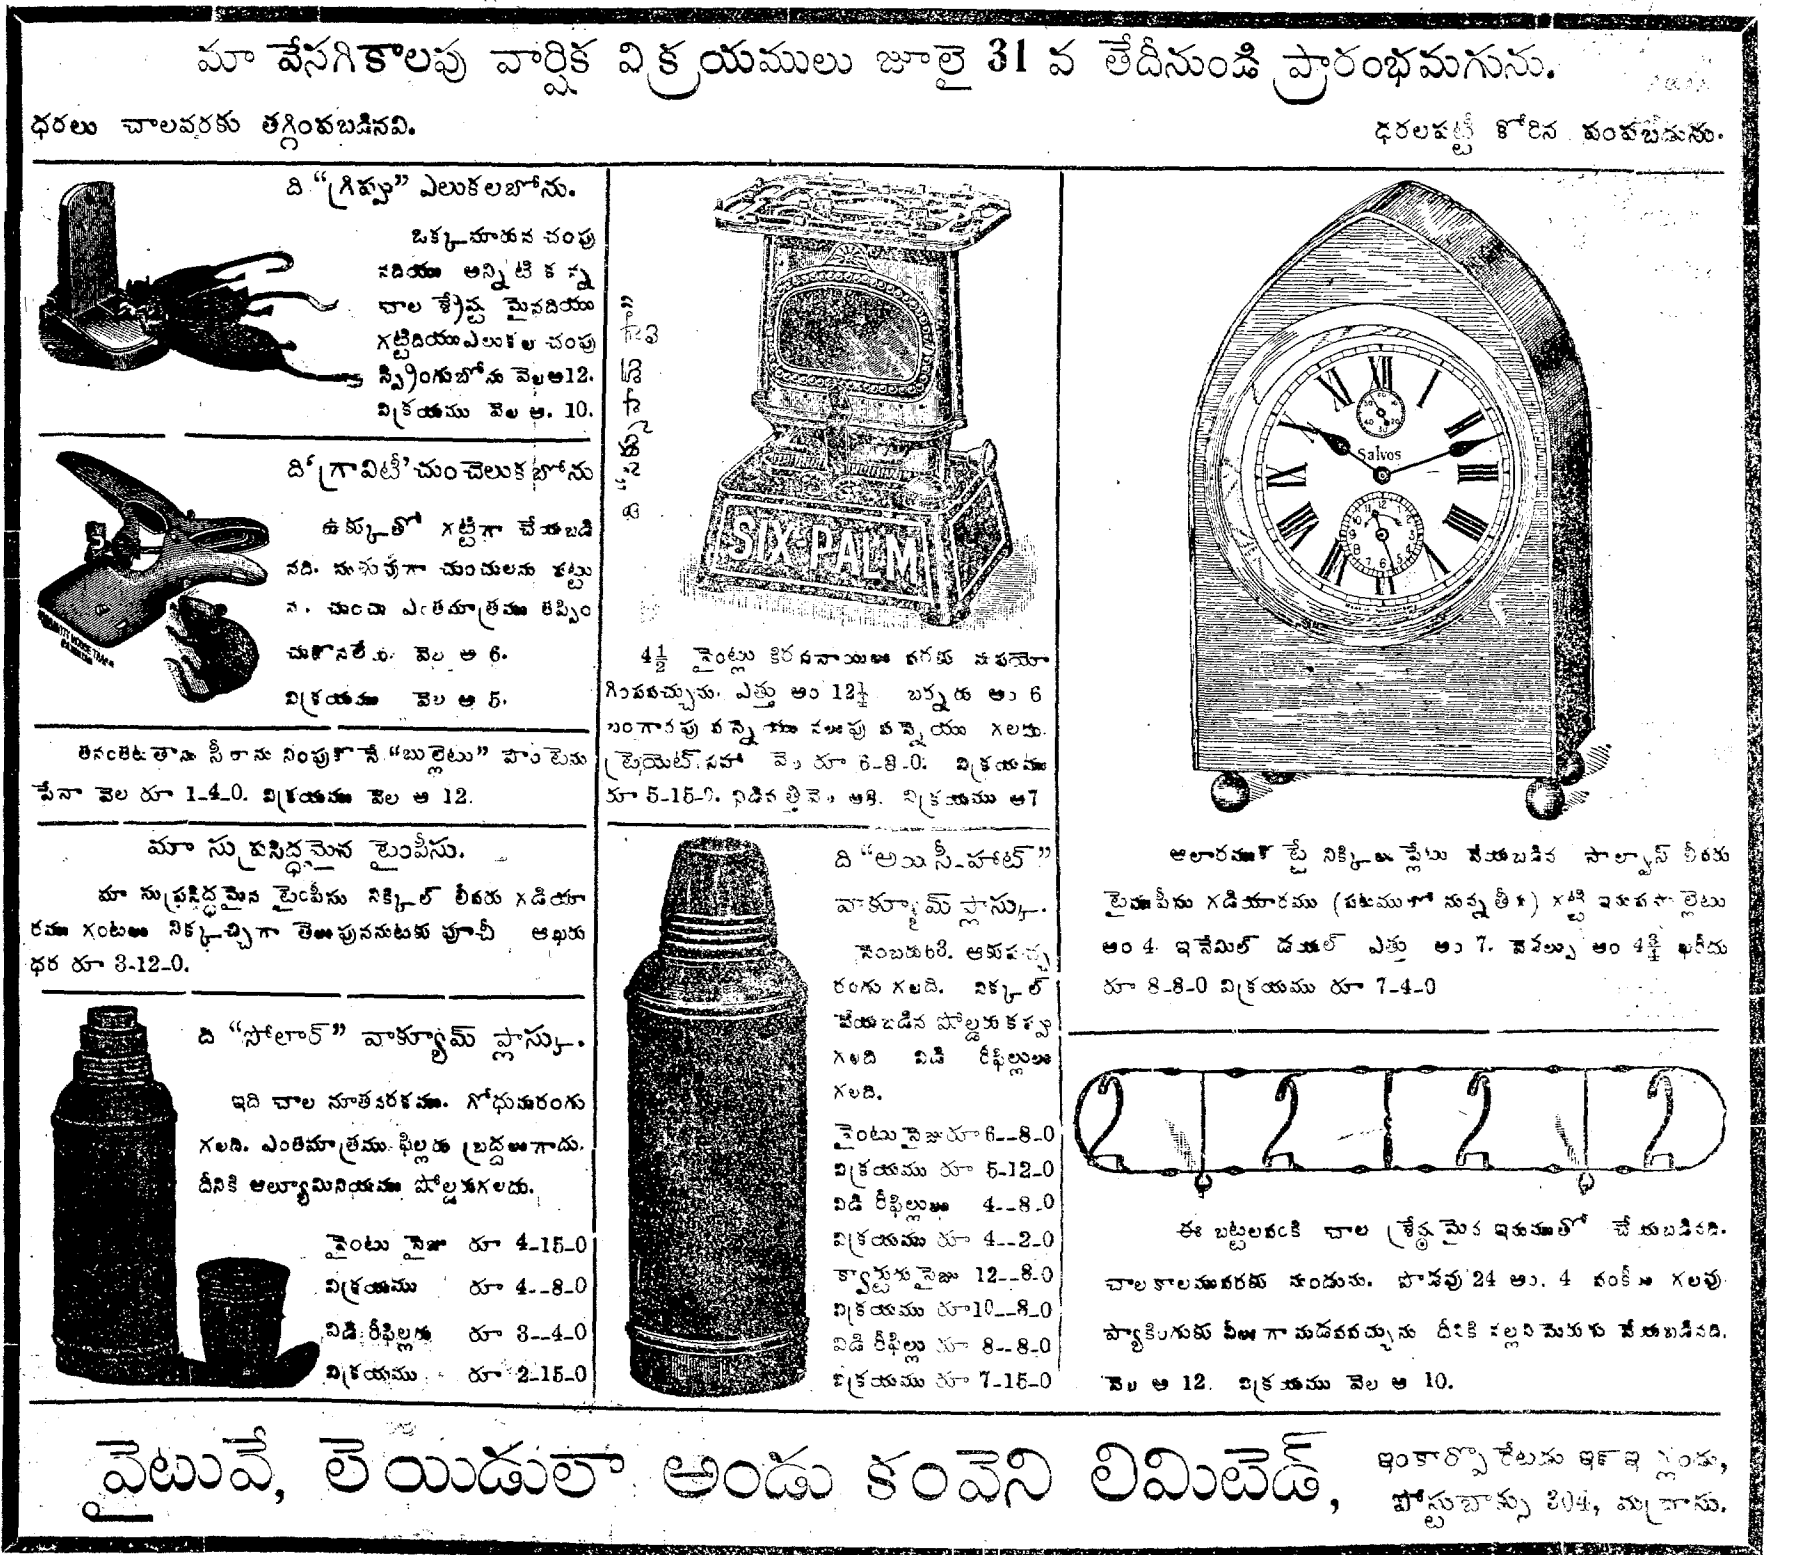 మా వేసగికాలపు వార్షిక విక్రయములు జూలై 31 వ తేదీనుండి ప్రారంభమగును.
ధరలు చాలవరకు తగ్గింపబడినవి.
ధరలపట్టీ కోరిన పంపబడును.
ది "గ్రిప్పు" ఎలుకలబోను.
ఒక్కమారున చంపు
నదియు అన్నిటికన్న
చాల శ్రేష్ఠమైనదియు
గట్టిదియు ఎలుకల చంపు
స్ప్రింగుబోను వెల అ12.
విక్రయము వెల అ. 10.
ది 'గ్రావిటీ' చుంచెలుకబోను
ఉక్కుతో గట్టిగా చేయబడి
నది. సుళువుగా చుంచులను కట్టు
న. చుంచు ఎంతమాత్రము తప్పిం
చుకొనలేదు. వెల అ 6.
విక్రయము వెల అ 5.
తనంతటతాను సీరాను నింపుకొనే "బుల్లెటు" పౌంటెను
పేనా వెల రూ 1-4-0. విక్రయము వెల అ 12.
మా సుప్రసిద్ధమైన టైంపీసు.
మా సుప్రసిద్ధమైన టైంపీసు నిక్కిల్ లీవరు గడియా
రము గంటలు నిక్కచ్చిగా తెలుపుననుటకు పూచీ ఆఖరు
ధర రూ 3-12-0.
ది "సోలార్" వాక్యూమ్ ప్లాస్కు.
ఇది చాల నూతనరకము. గోధుమరంగు
గలది. ఎంతమాత్రము ఫిల్లరు బ్రద్దలుగాదు.
దీనికి అల్యూమినియము హోల్డరుగలదు.
పైంటు సైజు రూ 4-15-0
విక్రయము రూ 4--8-0
విడి రీఫిల్లరు రూ 3--4-0
విక్రయము రూ 2-15-0
SIX-PALM
4½ పైంట్లు కిరసనాయిలు వరకు నుపయో
గింపవచ్చును. ఎత్తు అం 12½ బర్నరు అం 6
బంగారపు వన్నెయు నలుపు వన్నెయు గలదు.
ట్రైయెట్ సహా వెల రూ 6-8-0. విక్రయము
రూ 5-15-0. విడివత్తి వెల అ8. విక్రయము అ7
ది "అయిసీ-హాట్"
వాక్యూమ్ ప్లాస్కు.
నెంబరు 63. ఆకుపచ్చ
రంగు గలది. నిక్కల్
చేయబడిన హోల్డరుకప్పు
గలది విడి రీఫిల్లులు
గలది.
పైంటు సైజు రూ 6--8-0
విక్రయము రూ 5-12-0
విడి రీఫిల్లులు 4--8-0
విక్రయము రూ 4--2-0
క్వార్టురు సైజు 12--8-0
విక్రయము రూ10--8-0
విడి రీఫిల్లు రూ 8--8-0
విక్రయము రూ 7-15-0
Salvos
ఆలారముతో నిక్కిలు ప్లేటు చేయబడిన సాల్వాస్ లీవరు
టైముపీసు గడియారము (పటములో నున్న తీరు) గట్టి ఇనుప
అం 4 ఇనేమిల్ డయల్ ఎత్తు అం 7. వెడల్పు అం 4¾ ఖరీదు
రూ 8-8-0 విక్రయము రూ 7-4-0
ఈ బట్టలవంకి చాల శ్రేష్ఠమైన ఇనుముతో చేయబడినది.
చాలకాలమువరకు నుండును. పొడవు 24 అం. 4 వంకీలు గలవు
ప్యాకింగుకు వీలుగా మడవవచ్చును దీనికి నల్లని మెరుగు చేయబడినది.
వెల అ 12. విక్రయము వెల అ 10.
వైటువే, లెయిడులా అండు కంపెని లిమిటెడ్,
ఇంకార్పొరేటెడు ఇన్ ఇంగ్లండు,
పోస్టుబాక్సు 304, మద్రాసు.